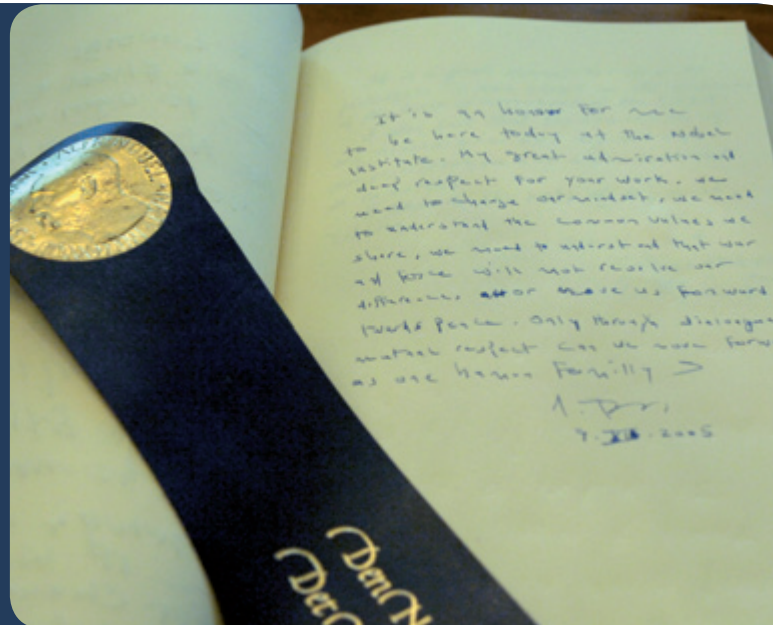 It is an honour for me
to be here today at the Nobel
Institute. My great admiration and
deep respect for your work. We
need to change our mindset, we need
to understand the common values we
share, we need to understand that war
and force will not resolve our
differences or move us forward
towards peace. Only through dialogue
mutual respect can we move forw
as one human family
2005
Den N
Det